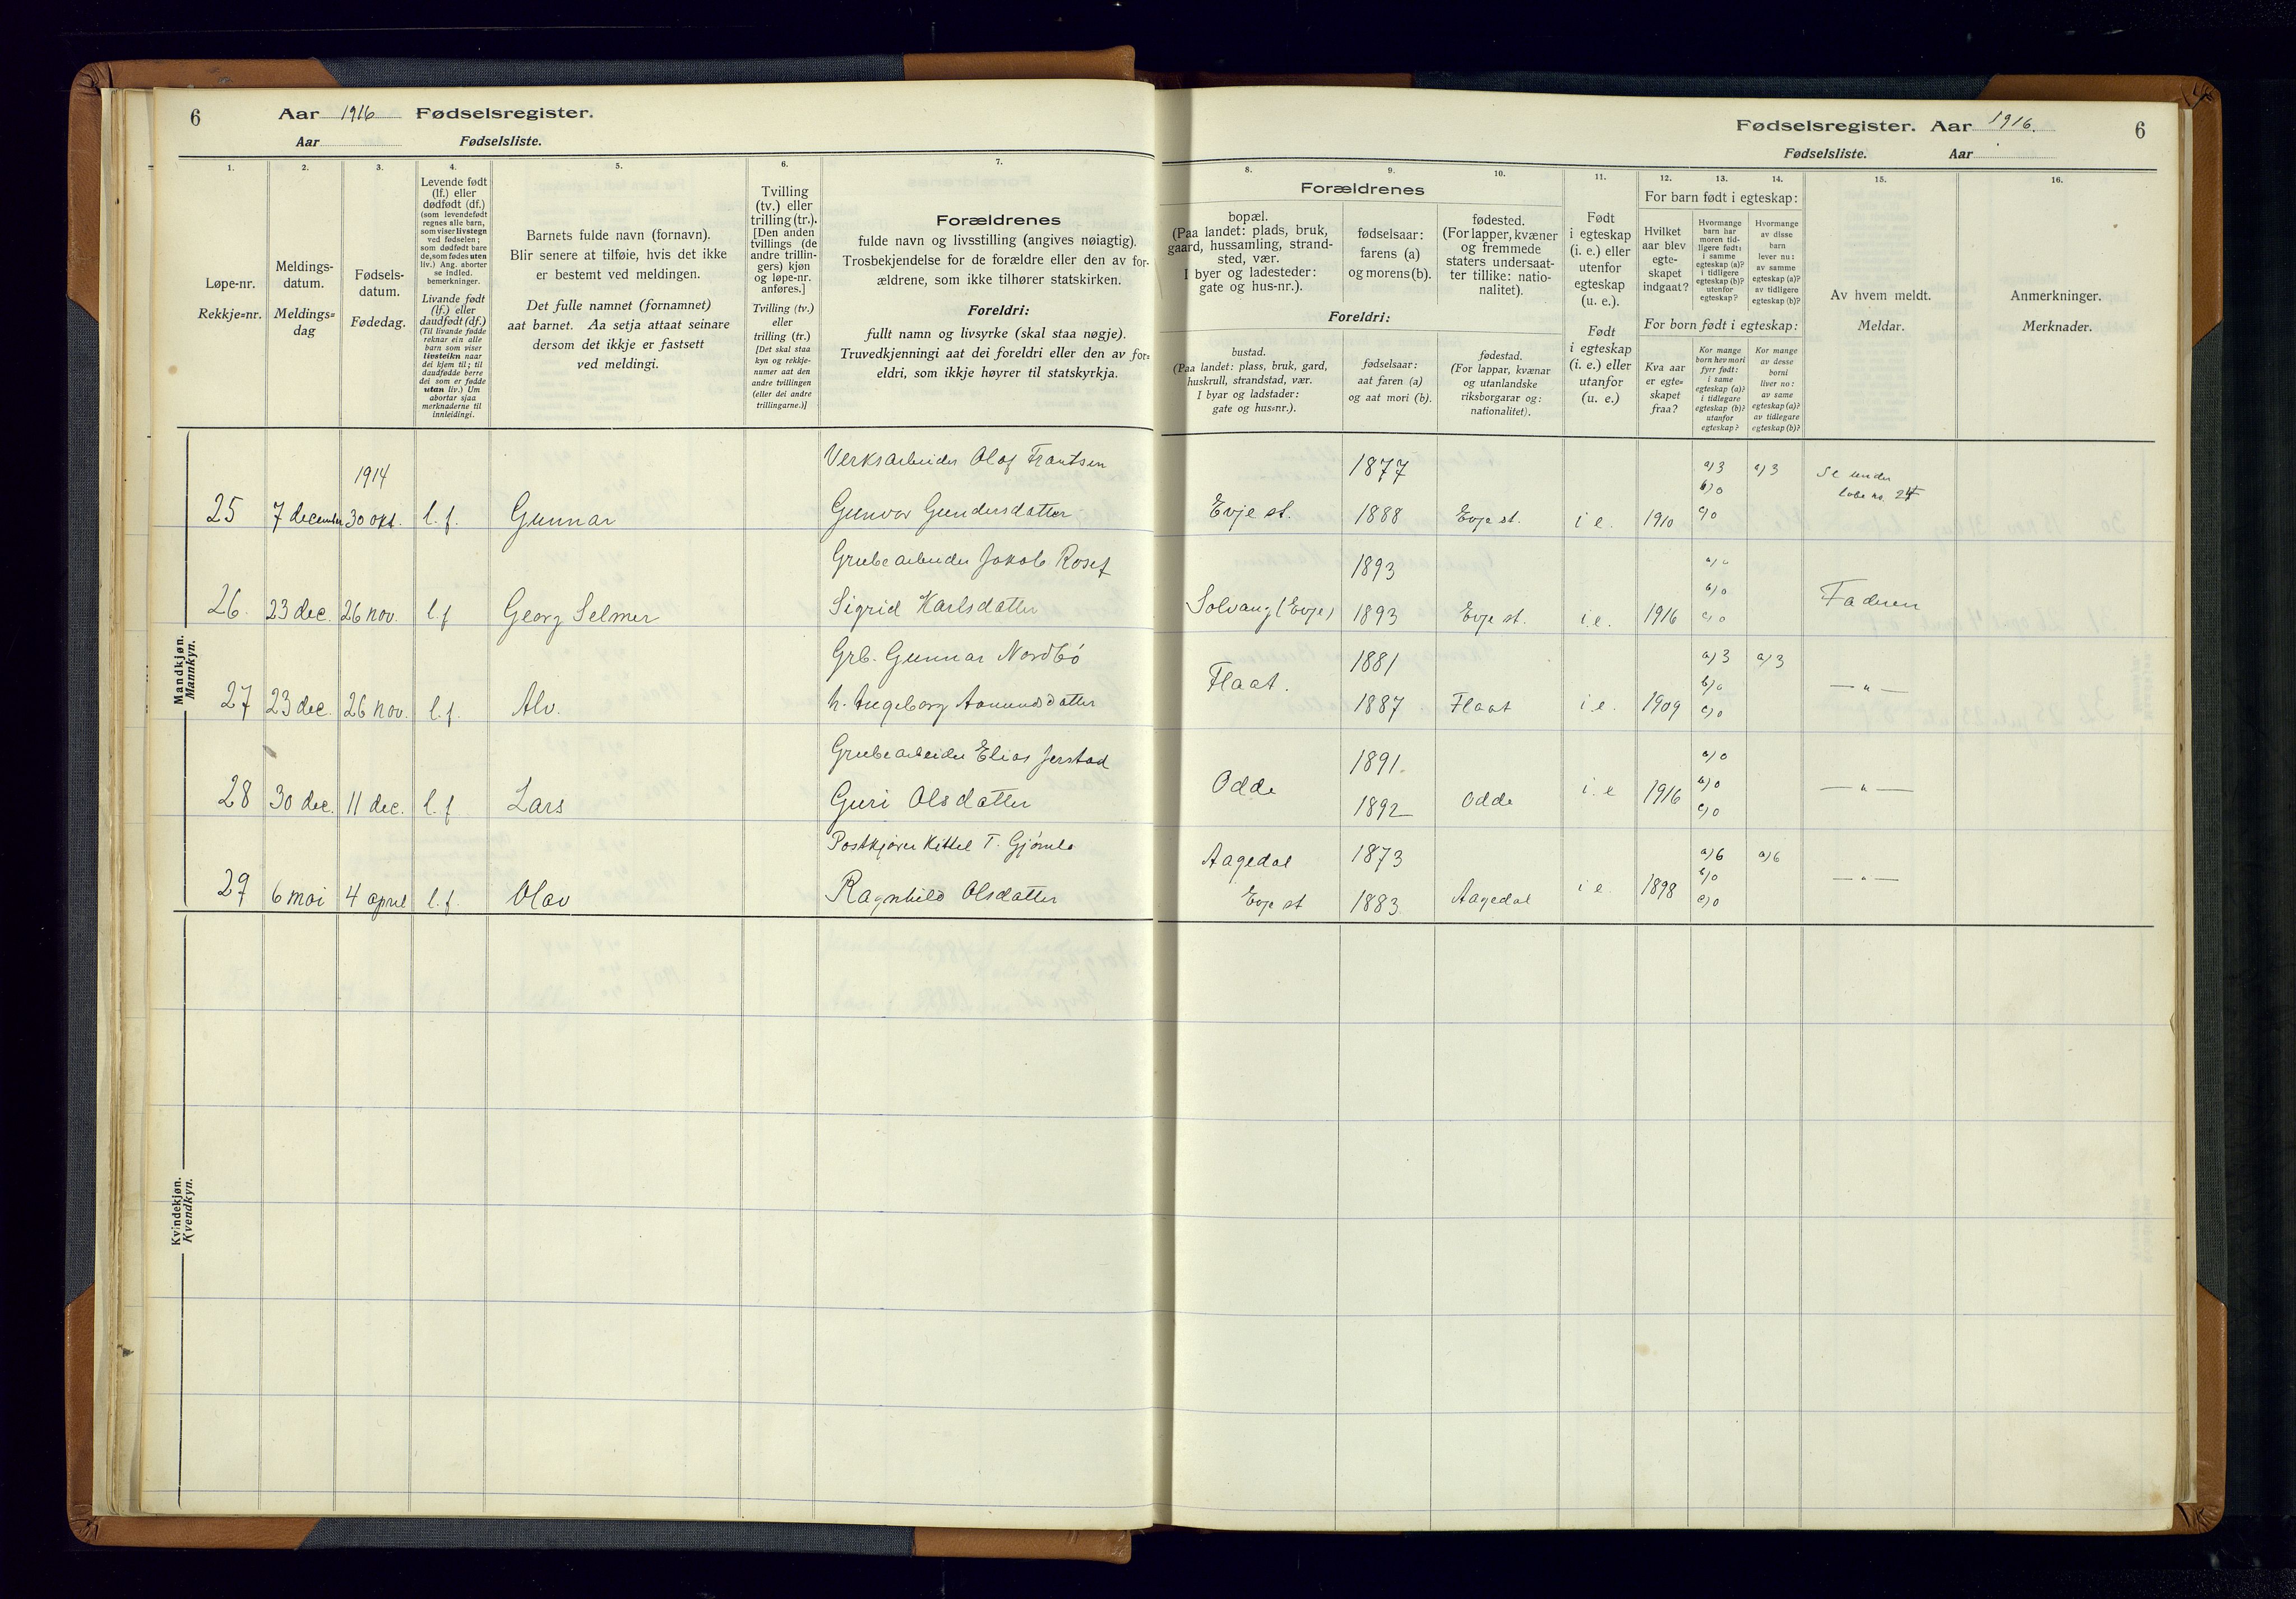 6 Aar 1916 Fødselsregister.
Aar Fødselsliste.
1. 2. 3. 4. 5. 6. 7.
Løpe-nr.
Rekkje=nr.
Meldings-
datum.
Meldings=
dag
Fødsels-
datum.
Fødedag.
Levende født
(lf.) eller
dødfødt (df.)
(som levendefødt
regnes alle barn,
som viser livstegn
ved fødselen;
som dødfødt bare
de, som fødes uten
liv.) Ang. aborter
se indled.
bemerkninger.
Livande født
(lf.) eller
daudfødt (df.)
(Til livande fødde
reknar ein alle
barn som viser
livsteikn naar
dei kjem til; til
daudfødde berre
dei som er fødde
utan liv.) Um
abortar sjaa
merknaderne til
innleidingi.
Barnets fulde navn (fornavn).
Blir senere at tilføie, hvis det ikke
er bestemt ved meldingen.
Det fulle namnet (fornamnet)
aat barnet. Aa setja attaat seinare
dersom det ikkje er fastsett
ved meldingi.
Tvilling
(tv.) eller
trilling (tr.).
[Den anden
tvillings (de
andre trillin-
gers) kjøn
og løpe-nr.
anføres.]
Tvilling (tv.)
eller
trilling (tr.)
[Det skal staa
kyn og rekkje-
numer aat den
andre tvillingen
(eller dei andre
trillingarne.)]
Forældrenes
fulde navn og livsstilling (angives nøiagtig).
Trosbekjendelse for de forældre eller den av for-
ældrene, som ikke tilhører statskirken.
Foreldri:
fullt namn og livsyrke (skal staa nøgje).
Truvedkjenningi aat dei foreldri eller den av for=
eldri, som ikkje høyrer til statskyrkja.
Fødselsregister. Aar 1916. 6
Fødselsliste. Aar
8. 9. 10. 11. 12. 13. 14. 15. 16.
Forældrenes
bopæl.
(Paa landet: plads, bruk,
gaard, hussamling, strand-
sted, vær.
I byer og ladesteder:
gate og hus-nr.).
fødselsaar:
farens (a)
og morens (b).
fødested.
(For lapper, kvæner
og fremmede
staters undersaat-
ter tillike: natio-
nalitet).
Foreldri:
bustad.
(Paa landet: plass, bruk, gard,
huskrull, strandstad, vær.
I byar og ladstader:
gate og hus=nr.).
fødselsaar:
aat faren (a)
og aat mori (b).
fødestad.
(For lappar, kvænar
og utanlandske
riksborgarar og:
nationalitet).
Født
i egteskap
(i. e.) eller
utenfor
egteskap
(u. e.).
Født
i egteskap
(i. e.) eller
utanfor
(u. e.)
For barn født i egteskap:
Hvilket
aar blev
egte-
skapet
indgaat?
Hvormange
barn har
moren tid-
ligere født:
i samme
egteskap (a)?
i tidligere
egteskap (b)?
utenfor
egteskap?
Hvormange
av disse
barn
lever nu:
av samme
egteskap (a)?
av tidligere
egteskap (b)?
For born født i egteskap:
Kva aar
er egte=
skapet
fraa?
Kor mange
born hev mori
fyrr født:
i same
egteskap (a)?
i tidlegare
egteskap (b)?
utanfor
egteskap?
Kor mange
av desse
borni
liver no:
av same
egteskap (a)?
av tidlegare
egteskap (b)?
Av hvem meldt.
Meldar.
Anmerkninger.
Merknader.
Mandkjøn.
Mannkyn.
1914 Verksarbeider Olaf Frantsen 1877 a) 3 a) 3 Se under
b) 0 løbe no. 24
25 7 december 30 okt. l. f. Gunnar Gunvor Gundersdatter Evje st. 1888 Evje st. i e. 1910 c) 0
Grubearbeider Jakob Rosef 1893
b) 0
26. 23 dec. 26 nov. l. f Georg Selmer Sigrid Karlsdatter Solvang (Evje) 1893 Evje st. i. e. 1916 c) 0 Faderen
Grb. Gunnar Nordbó 1881 a) 3 a) 3
b) 0
27 23 dec. 26 nov. l. f. Alv. h. Ingeborg Aanundsdatter Flaat. 1887 Flaat i. e. 1909 c) 0 — " —
Grubearbeider Elias Jerstad 1891. a) 0
b) 0
28 30 dec. 11 dec. l. f. Lars Guri Olsdatter Odde 1892 Odde i. e 1916 c) 0 — " —
Postkjører Kittel T. Aagedal 1873 a) 6 a) 6
b) 0
29 6 mai 4 april l. f. Olav Ragnhild Olsdatter Evje st 1883. Aagedal i e 1898 c) 0 — " —
Kvindekjøn.
Kvendkyn.